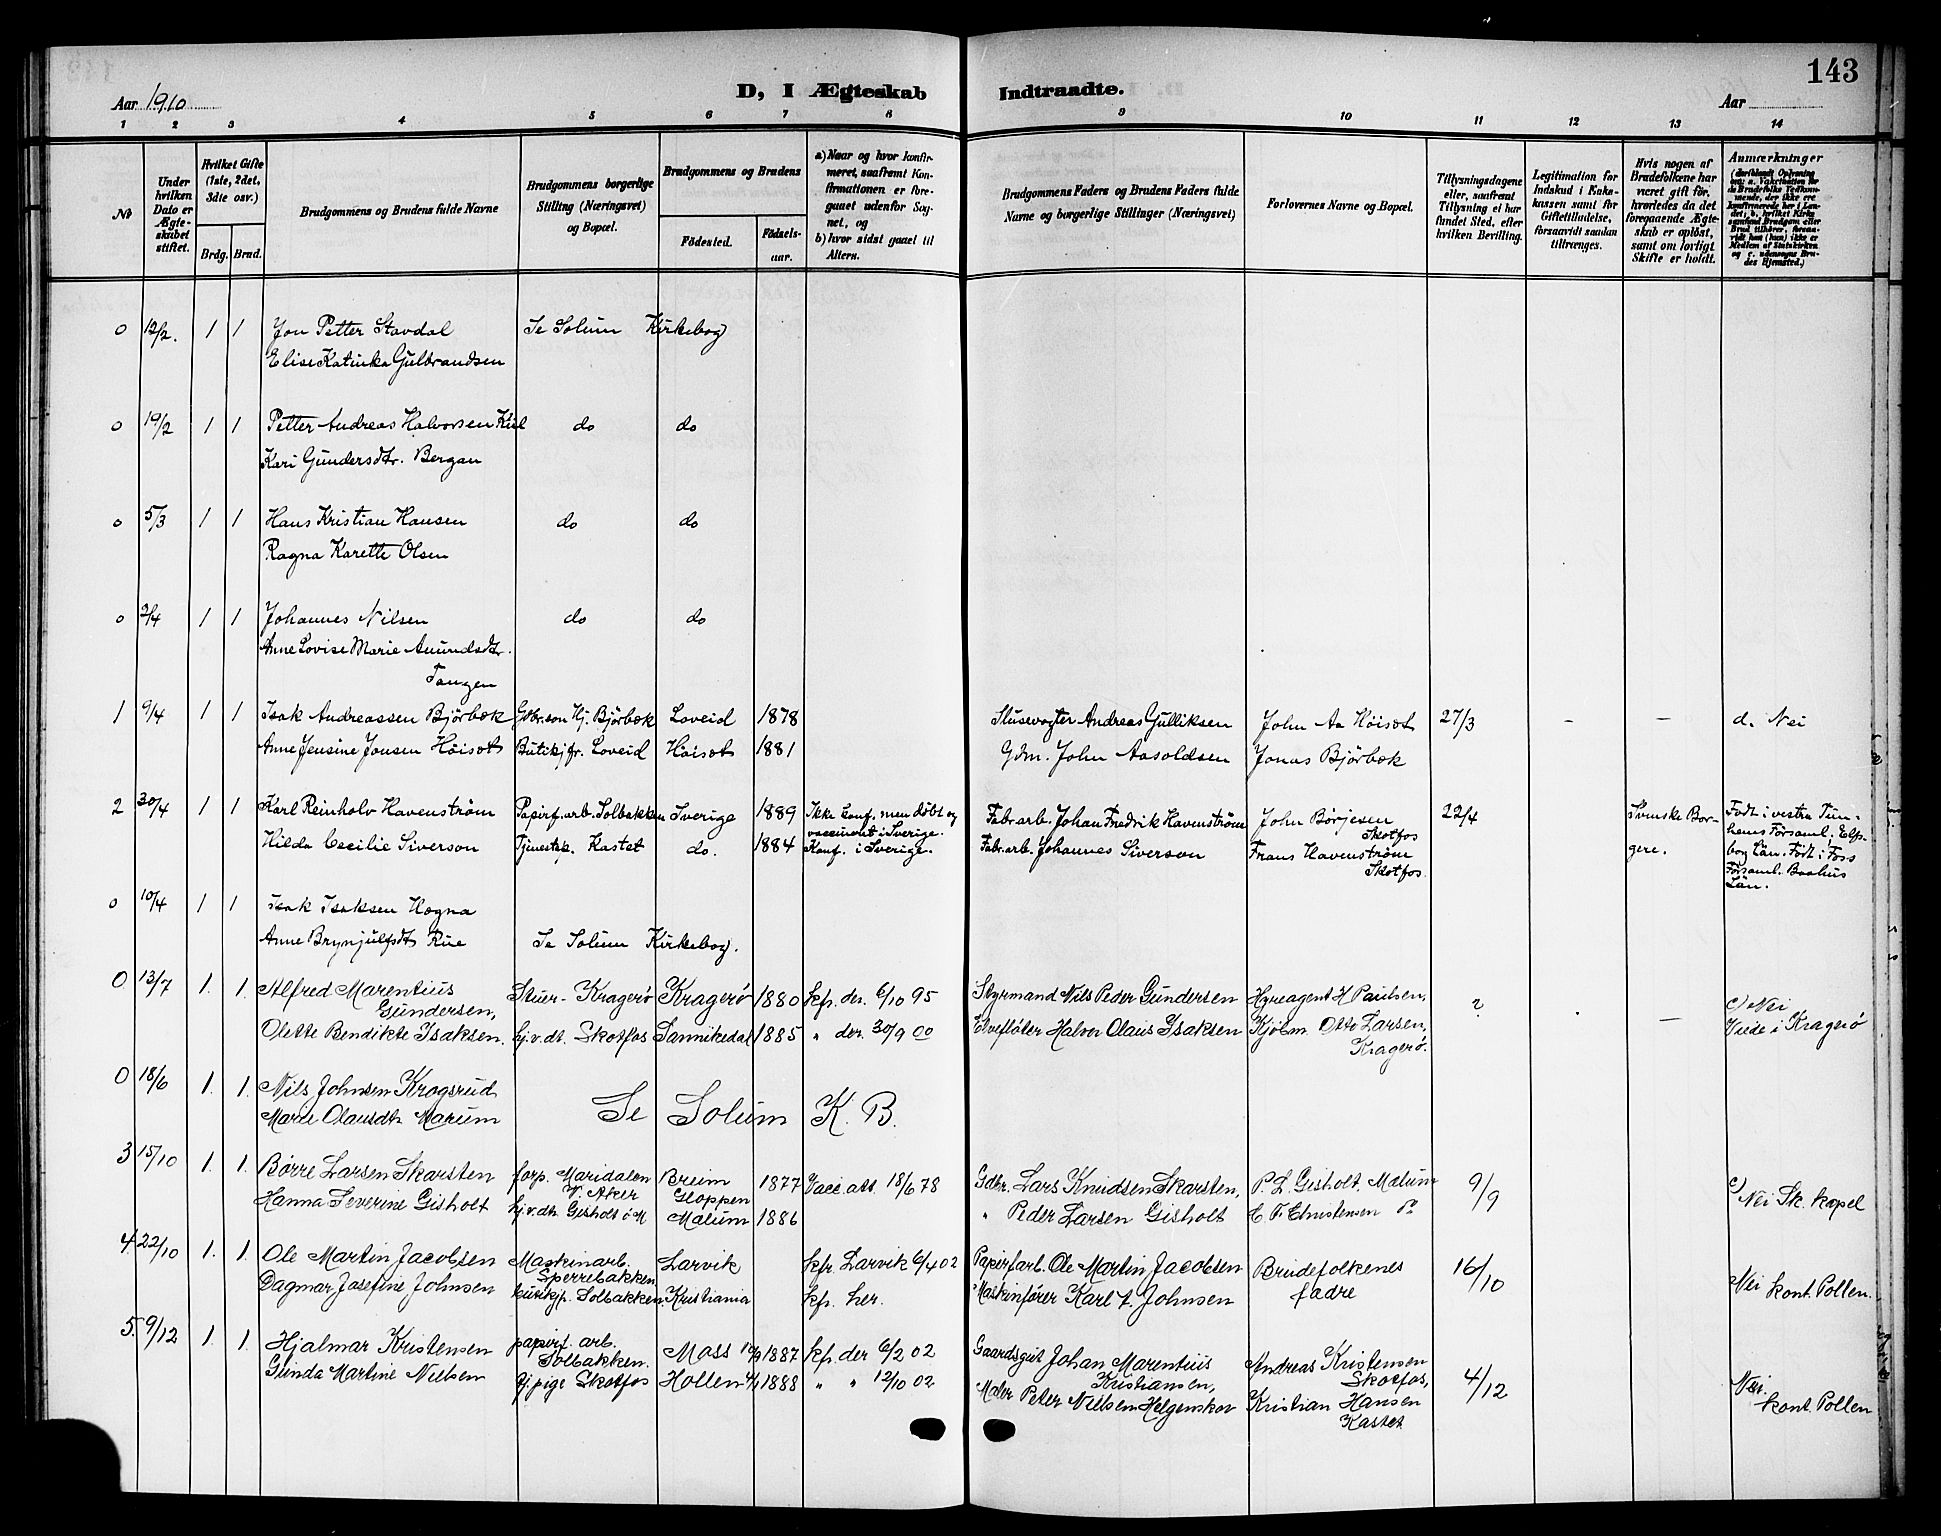 143
Aar 1910
D, I Ægteskab Indtraadte.
Aar
1 2 3 4 5 6 7 8 9 10 11 12 13 14
№
Under hvilken Dato er Ægteskabet stiftet.
Hvilket Gifte (1ste, 2det, 3die osv.)
Brdg. Brud.
Brudgommens og Brudens fulde Navne
Brudgommens borgerlige Stilling (Næringsvei) og Bopæl.
Brudgommens og Brudens
Födested. Födsels-aar.
a) Naar og hvor konfirmeret, saafremt Konfirmationen er foregaaet udenfor Sognet, og b) hvor sidst gaaet til Alters.
Brudgommens Faders og Brudens Faders fulde Navne og borgerlige Stillinger (Næringsvei)
Forlovernes Navne og Bopæl.
Tillysningsdagene eller, saafremt Tillysning ei har fundet Sted, efter hvilken Bevilling.
Legitimation for Indskud i Enkekassen samt for Giftetilladelse, forsaavidt saadan tiltrænges.
Hvis nogen af Brudefolkene har været gift för, hvorledes da det foregaaende Ægteskab er oplöst, samt om lovligt Skifte er holdt.
Anmærkninger
0 12/2. 1 1 Jon Petter Stavdal Se Solum Kirkebog
Elise Katinka Gulbrandsen
0 19/2 1 1 Petter Andreas Halvorsen Kiil do do
Kari Gundersdtr. Bergan
0 5/3 1 1 Hans Kristian Hansen do do
Ragna Karette Olsen
0 2/4 1 1 Johannes Nilsen do do
Anne Lovise Marie Amundsdtr.
Tangen
1 9/4 1 1 Isak Andreassen Björbæk Gdbr.søn Hj. Björbæk Loveid 1878 Slusevogter Andreas Gulliksen John Aa Höisæt 27/3 - - d. Nei
Anne Jensine Jonsen Höisæt Butikjfr. Loveid Höisæt 1881 Gdm. John Aasoldsen Jonas Björbæk
2 30/4 1 1 Karl Reinholv Havenström Papirf.arb. Solbakken Sverige 1889 Ikke konf. men döbt og vaccineret i Sverige. Fabr.arb. Johan Fredrik Havenström John Börjesen Skotfos 22/4 Svenske Borgere. Födt i vestra Tunhems Församl. Elfsborg Län. Födt i Foss Församl. Boohus Län.
Hilda Cecilie Siverson Tjenestep. Kastet do. 1884 Konf. i Sverige. Fabr.arb. Johannes Siverson Frans Havenström Skotfos.
0 10/4 1 1 Isak Isaksen Hogna
Anne Brynjulfsdt Rue Se Solum Kirkebog.
0 13/7 1. 1. Alfred Marentius Gundersen, Stuer- Kragerö Kragerö 1880 kfr. der. 6/10 95 Styrmand Nils Peder Gundersen Hyreagent H Paulsen, ? c) Nei
Olette Bendikte Isaksen. hj.v.dt. Skotfos Sannikedal 1885 " der. 30/9 00 Elveflöter Halvor Olaus Isaksen Kjöbm. Otto Larsen, Kragerö. — Viede i Kragerö
0 18/6 1. 1. Nils Johnsen Krogsrud
Marie Olausdtr Marum Se Solum K. B.
3 15/10 1. 1. Börre Larsen Skarsten forp. Maridalen V. Aker Breim Gloppen 1877 Vacc. att 18/6 78 Gdbr. Lars Knudsen Skarsten, P. L. Gisholt. Mælum 9/9 c) Nei Sk. kapel
Hanna Severine Gisholt hj.v.dtr. Gisholt ö M Mælum 1886 " Peder Larsen Gisholt C. F. Christensen do
4. 22/10 1. 1. Ole Martin Jacobsen Maskinarb. Sperrebakken Larvik kfr. Larvik 6/4 02 Papirfarb. Ole Martin Jacobsen Brudefolkenes fædre 16/10 Nei kont. Pollen.
Dagmar Josefine Johnsen butikjfr. Solbakken. Kristiania kfr. her. Maskinförer Karl A. Johnsen
5. 9/12 1. 1. Hjalmar Kristensen papirf. arb. Solbakken. Moss 1887 kfr. der 6/2 02 Gaardsgut Johan Marentius Kristiansen, Andreas Kristensen Skotfos, 4/12 Nei. kont. Pollen
Gunda Martine Nielsen tj. pige Skotfos Hollen 1888 " " 12/10 02 Maler Peter Nielsen Helgenskov Kristian Hansen Kastet